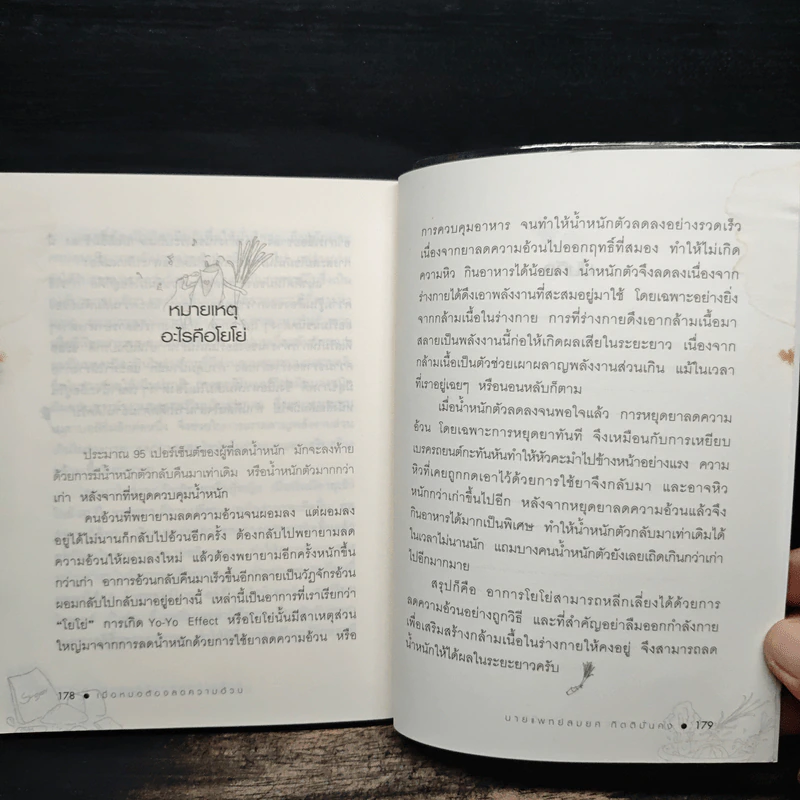 หมายเหตุ
อะไรคือโยโย่
ประมาณ 95 เปอร์เซ็นต์ของผู้ที่ลดน้ำหนัก มักจะลงท้าย
ด้วยการมีน้ำหนักตัวกลับคืนมาเท่าเดิม หรือน้ำหนักตัวมากกว่า
เก่า หลังจากที่หยุดควบคุมน้ำหนัก
คนอ้วนที่พยายามลดความอ้วนจนผอมลง แต่ผอมลง
อยู่ได้ไม่นานก็กลับไปอ้วนอีกครั้ง ต้องกลับไปพยายามลด
ความอ้วนให้ผอมลงใหม่ แล้วต้องพยายามอีกครั้งหนักขึ้น
กว่าเก่า อาการอ้วนกลับคืนมาเร็วขึ้นอีกกลายเป็นวัฏจักรอ้วน
ผอมกลับไปกลับมาอยู่อย่างนี้ เหล่านี้เป็นอาการที่เราเรียกว่า
“โยโย่” การเกิด Yo-Yo Effect หรือโยโย่นั้นมีสาเหตุส่วน
ใหญ่มาจากการลดน้ำหนักด้วยการใช้ยาลดความอ้วน หรือ
178 • เมื่อหมอต้องลดความอ้วน
การควบคุมอาหาร จนทำให้น้ำหนักตัวลดลงอย่างรวดเร็ว
เนื่องจากยาลดความอ้วนไปออกฤทธิ์ที่สมอง ทำให้ไม่เกิด
ความหิว กินอาหารได้น้อยลง น้ำหนักตัวจึงลดลงเนื่องจาก
ร่างกายได้ดึงเอาพลังงานที่สะสมอยู่มาใช้ โดยเฉพาะอย่างยิ่ง
จากกล้ามเนื้อในร่างกาย การที่ร่างกายดึงเอากล้ามเนื้อมา
สลายเป็นพลังงานนี้ก่อให้เกิดผลเสียในระยะยาว เนื่องจาก
กล้ามเนื้อเป็นตัวช่วยเผาผลาญพลังงานส่วนเกิน แม้ในเวลา
ที่เราอยู่เฉยๆ หรือนอนหลับก็ตาม
เมื่อน้ำหนักตัวลดลงจนพอใจแล้ว การหยุดยาลดความ
อ้วน โดยเฉพาะการหยุดยาทันที จึงเหมือนกับการเหยียบ
เบรครถยนต์กะทันหันทำให้หัวคะมำไปข้างหน้าอย่างแรง ความ
หิวที่เคยถูกกดเอาไว้ด้วยการใช้ยาจึงกลับมา และอาจหิว
หนักกว่าเก่าขึ้นไปอีก หลังจากหยุดยาลดความอ้วนแล้วจึง
กินอาหารได้มากเป็นพิเศษ ทำให้น้ำหนักตัวกลับมาเท่าเดิมได้
ในเวลาไม่นานนัก แถมบางคนน้ำหนักตัวยังเลยเถิดเกินกว่าเก่า
ไปอีกมากมาย
สรุปก็คือ อาการโยโย่สามารถหลีกเลี่ยงได้ด้วยการ
ลดความอ้วนอย่างถูกวิธี และที่สำคัญอย่าลืมออกกำลังกาย
เพื่อเสริมสร้างกล้ามเนื้อในร่างกายให้คงอยู่ จึงสามารถลด
น้ำหนักให้ได้ผลในระยะยาวครับ
นายแพทย์สมยศ กิตติมั่นคง • 179